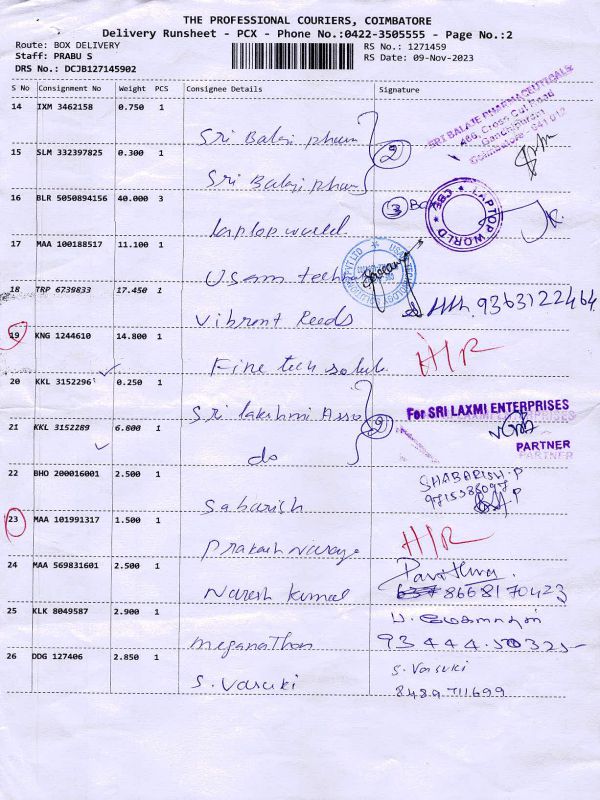 THE PROFESSIONAL COURIERS, COIMBATORE
Delivery Runsheet - PCX - Phone No.:0422-3505555 - Page No.:2
Route: BOX DELIVERY
RS No.: 1271459
Staff: PRABU S
RS Date: 09-Nov-2023
DRS No.: DCJB127145902
S No Consignment No Weight PCS Consignee Details Signature
14 IXM 3462158 0.750 1
Sri Balaji pharm
SRI BALAJI PHARMACEUTICALS
486, Cross Cut Road
Gandhipuram
Coimbatore - 641 012
15 SLM 332397825 0.300 1
2
Sri Balaji pharm
16 BLR 5050894156 40.000 3
3
laptop world
LAPTOP WORLD ★ CBE ★
17 MAA 100188517 11.100 1
Usam techn
18 TRP 6739833 17.450 1
Vibrant Reeds
9363122464
19 KNG 1244610 14.800 1
Fine tech solut
H/R
20 KKL 3152296 0.250 1
Sri lakshmi Asso
For SRI LAXMI ENTERPRISES
21 KKL 3152289 6.800 1
2
do
PARTNER
22 BHO 200016001 2.500 1
Sabarish
SHABARISH.P
23 MAA 101991317 1.500 1
Prakash Naraya
H/R
24 MAA 569831601 2.500 1
Naresh kumar
Pavithra
8668170423
25 KLK 8049587 2.900 1
meganathan
26 DDG 127406 2.850 1
S. Vasuki
S. Vasuki
8489711699